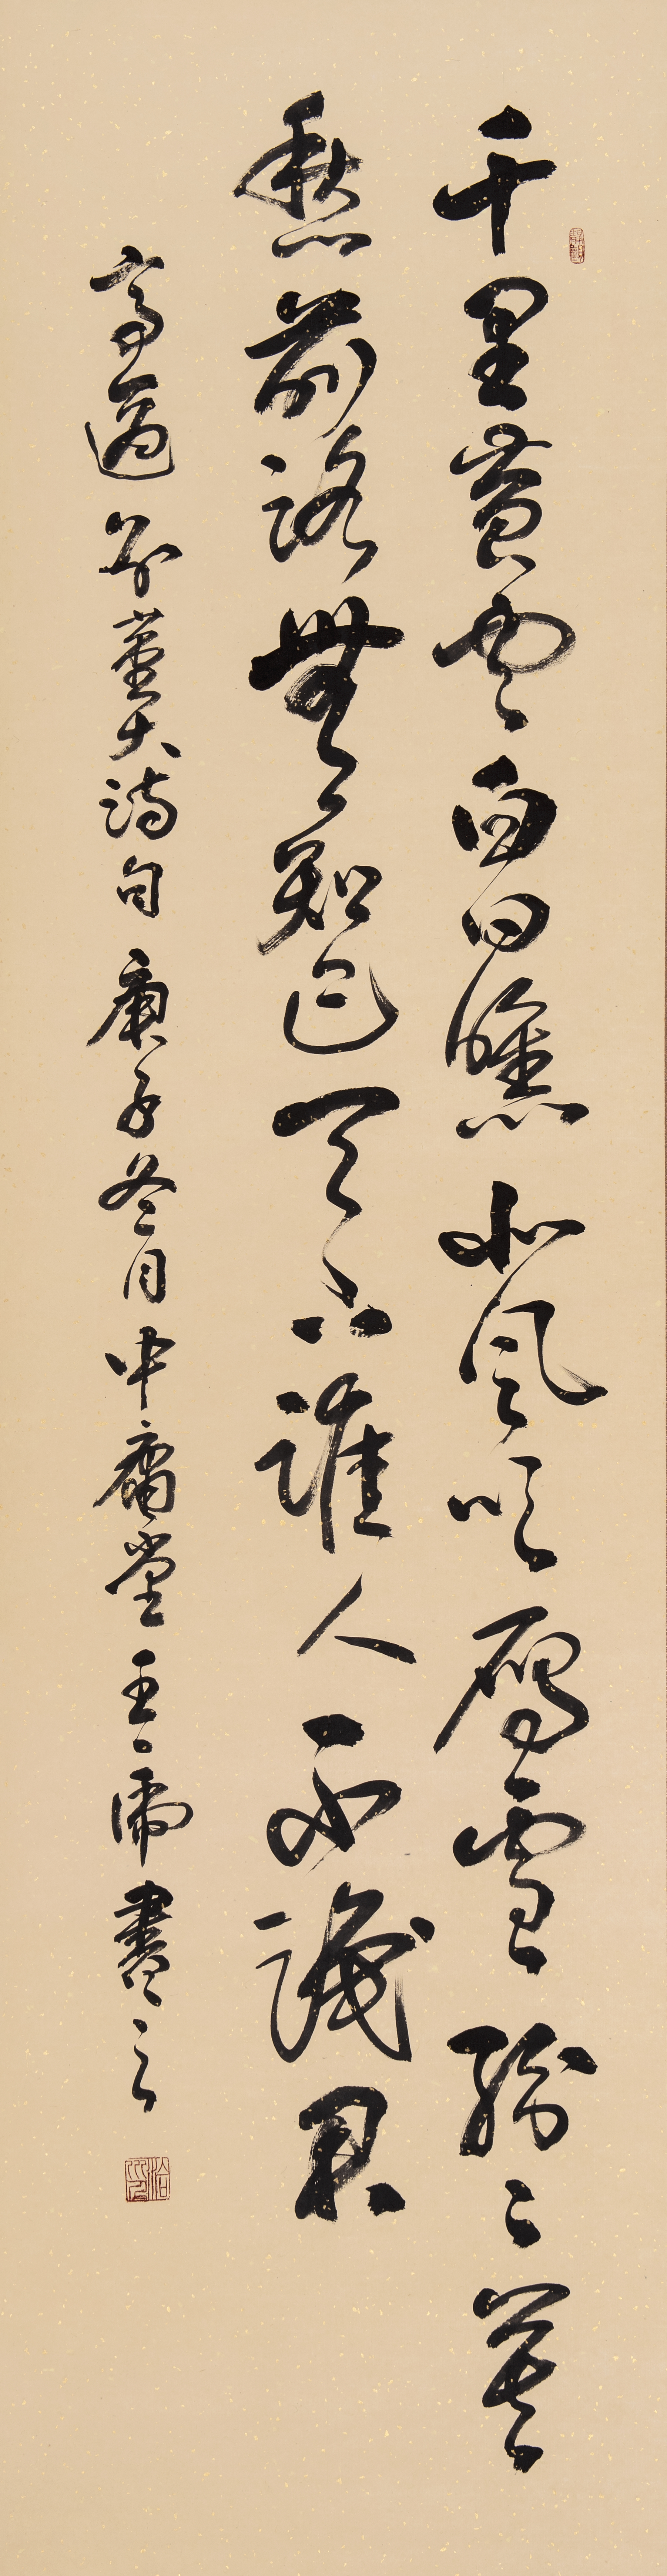 千里黄雲白日曛北風吹雁雪紛々莫
愁前路無知己天下誰人不識君
高適別董大詩句庚子冬月中庸堂王書之